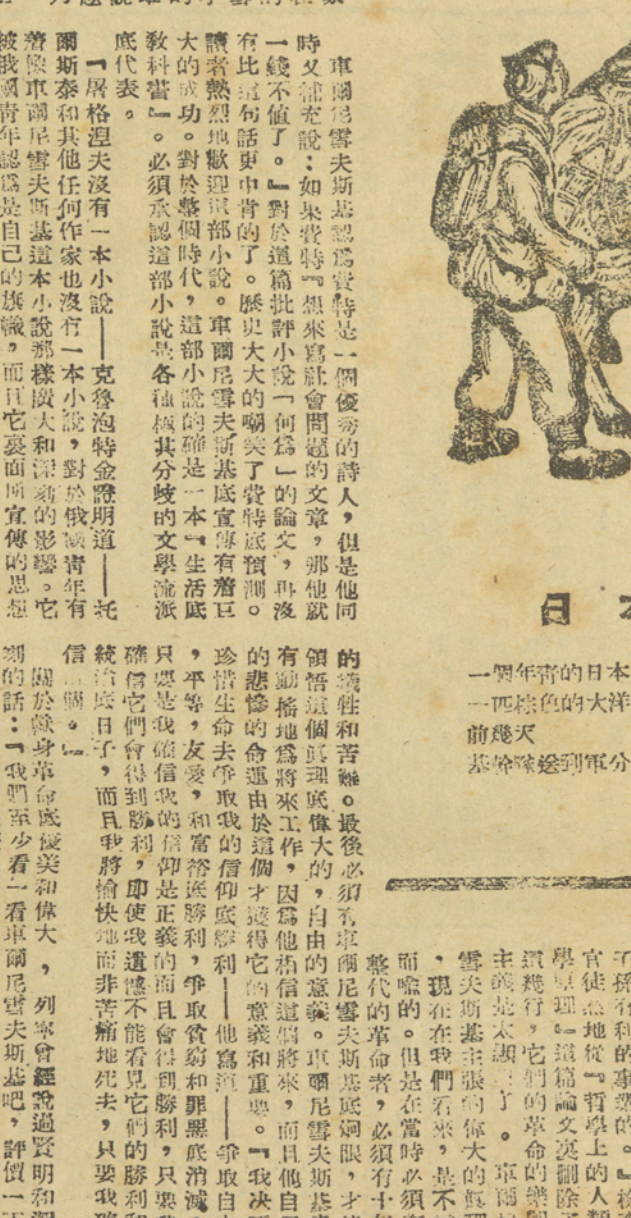 車爾尼雪夫斯基認為費特是一個優秀的詩人，但是他同
時又補充說：如果費特『想來寫社會問題的文章，那他就
一錢不值了。』對於這篇批評小說「何爲」的論文，再沒
有比這句話更中肯的了。歷史大大的嘲笑了費特底預測。
讀者熱烈地歡迎這部小說。車爾尼雪夫斯基底宣傳有着巨
大的成功。對於整個時代，這部小說的確是一本『生活底
敎科書』。必須承認這部小說是各種極其分岐的文學流派
底代表。
『屠格涅夫沒有一本小說——克魯泡特金證明道——托
爾斯泰和其他任何作家也沒有一本小說，對於俄國青年有
着像車爾尼雪夫斯基這本小說那樣廣大和深刻的影響。它
被俄國青年認爲是自己的旗幟，而且它裏面所宣傳的思想
的犧牲和苦難。最後必須有車爾尼雪夫斯基底炯眼，才
領悟這個眞理底偉大的，自由的意義。車爾尼雪夫斯基
有動搖地爲將來工作，因爲他相信這個將來，而且他自
的悲慘的命運由於這個才獲得它的意義和重要。『我决
珍惜生命去爭取我的信仰底勝利——他寫道——爭取自
，平等，友愛，和富裕底勝利，爭取貧窮和罪惡底消滅
只要是我確信我的信仰是正義的而且會得到勝利，只要
確信它們會得到勝利，即使我遺憾不能看見它們的勝利和
統治底日子，而且我將愉快地而非苦痛地死去，只要我
信這個。』
關於獻身革命底優美和偉大，列寧曾經說過賢明和
刻的話：『我們至少看一看車爾尼雪夫斯基吧，評價一
日本
一個年青的日本
一匹棕色的大洋
前幾天
基幹隊送到軍分
子孫有利的事業的。』
官徒然地從『哲學上的人類
學原理』這篇論文裏刪除了
這幾行，它們的革命的樂
主義是太顯了。車爾
雪夫斯基主張的偉大的眞理
，現在在我們看來，是不
而喩的。但是在當時必須
整代的革命者，必須有十